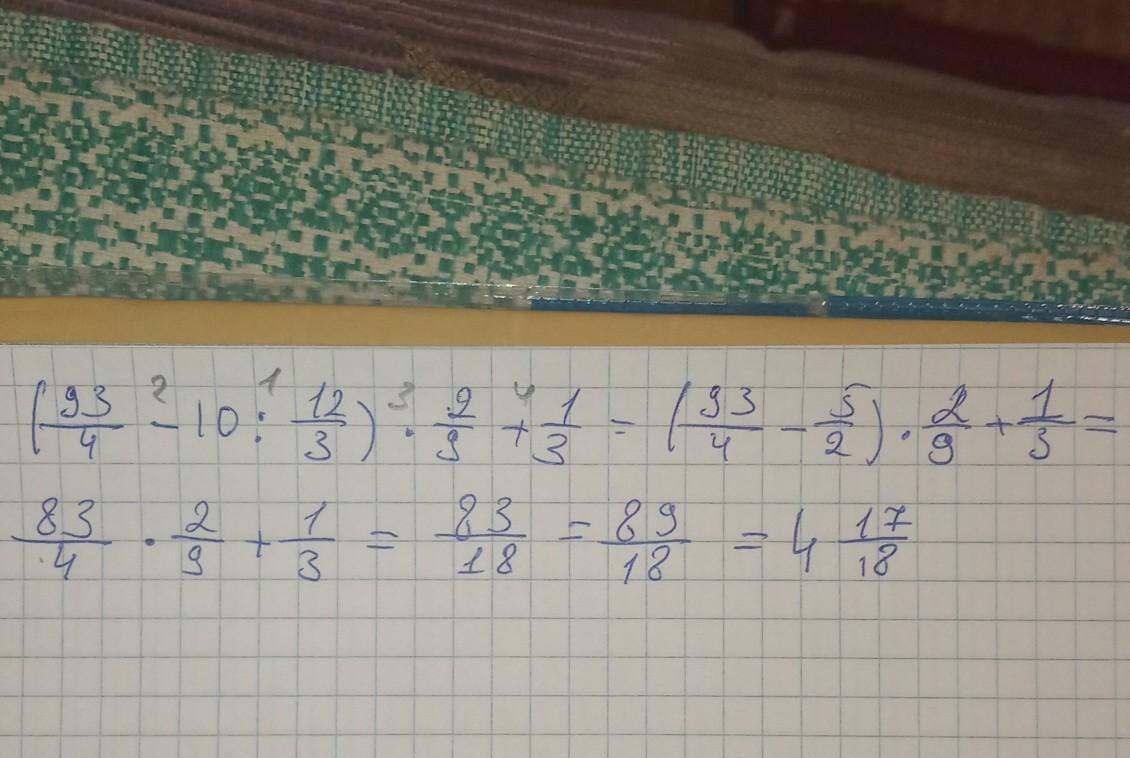 (93/4 - 10 : 12/3) · 2/9 + 1/3 = (93/4 - 5/2) · 2/9 + 1/3 =
83/4 · 2/9 + 1/3 = 83/18 = 89/18 = 4 17/18